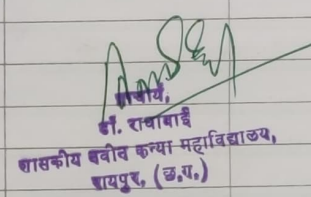 प्राचार्य,
डॉ. राधाबाई
शासकीय नवीन कन्या महाविद्यालय,
रायपुर, (छ.ग.)